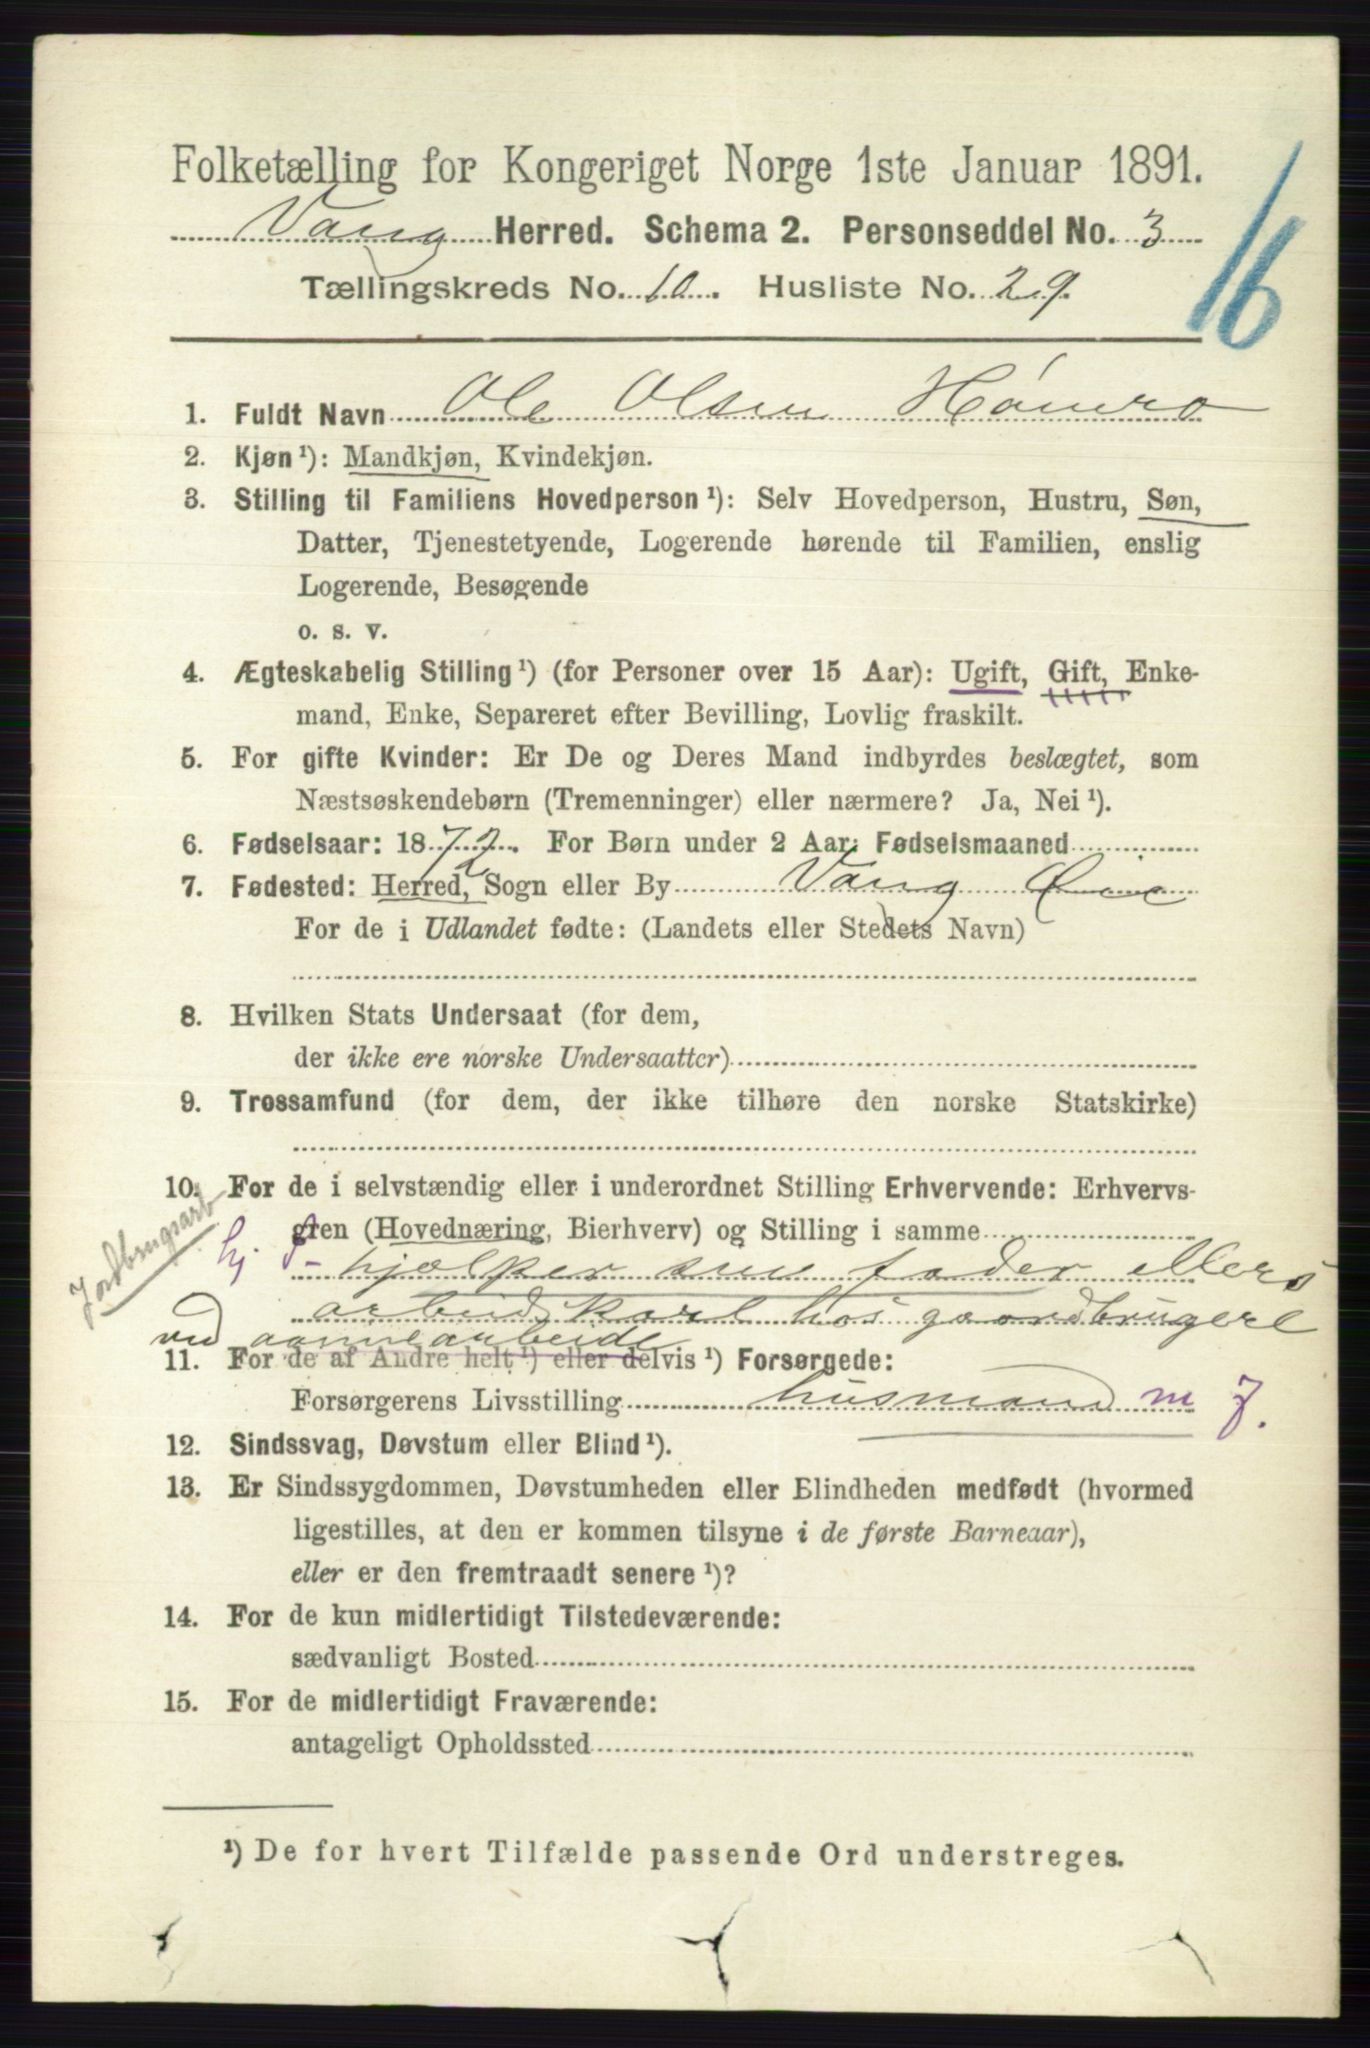 Folketælling for Kongeriget Norge 1ste Januar 1891.
16
Vang Herred. Schema 2. Personseddel No. 3
Tællingskreds No. 10. Husliste No. 29
1. Fuldt Navn Ole Olsen
2. Kjøn ¹): Mandkjøn, Kvindekjøn.
3. Stilling til Familiens Hovedperson ¹): Selv Hovedperson, Hustru, Søn,
Datter, Tjenestetyende, Logerende hørende til Familien, enslig
Logerende, Besøgende
o. s. v.
4. Ægteskabelig Stilling ¹) (for Personer over 15 Aar): Ugift, Gift, Enke-
mand, Enke, Separeret efter Bevilling, Lovlig fraskilt.
5. For gifte Kvinder: Er De og Deres Mand indbyrdes beslægtet, som
Næstsøskendebørn (Tremenninger) eller nærmere? Ja, Nei ¹).
6. Fødselsaar: 1872. For Børn under 2 Aar: Fødselsmaaned
7. Fødested: Herred, Sogn eller By Vang
For de i Udlandet fødte: (Landets eller Stedets Navn)
8. Hvilken Stats Undersaat (for dem,
der ikke ere norske Undersaatter)
9. Trossamfund (for dem, der ikke tilhøre den norske Statskirke)
10. For de i selvstændig eller i underordnet Stilling Erhvervende: Erhvervs-
gren (Hovednæring, Bierhverv) og Stilling i samme
Jordbrugsarb
hj. F-
hjælper sin fader ellers
arbeidskarl hos gaardbrugere
ved aannearbeide
11. For de af Andre helt ¹) eller delvis ¹) Forsørgede:
Forsørgerens Livsstilling husmand m J.
12. Sindssvag, Døvstum eller Blind ¹).
13. Er Sindssygdommen, Døvstumheden eller Blindheden medfødt (hvormed
ligestilles, at den er kommen tilsyne i de første Barneaar),
eller er den fremtraadt senere ¹)?
14. For de kun midlertidigt Tilstedeværende:
sædvanligt Bosted
15. For de midlertidigt Fraværende:
antageligt Opholdssted
¹) De for hvert Tilfælde passende Ord understreges.